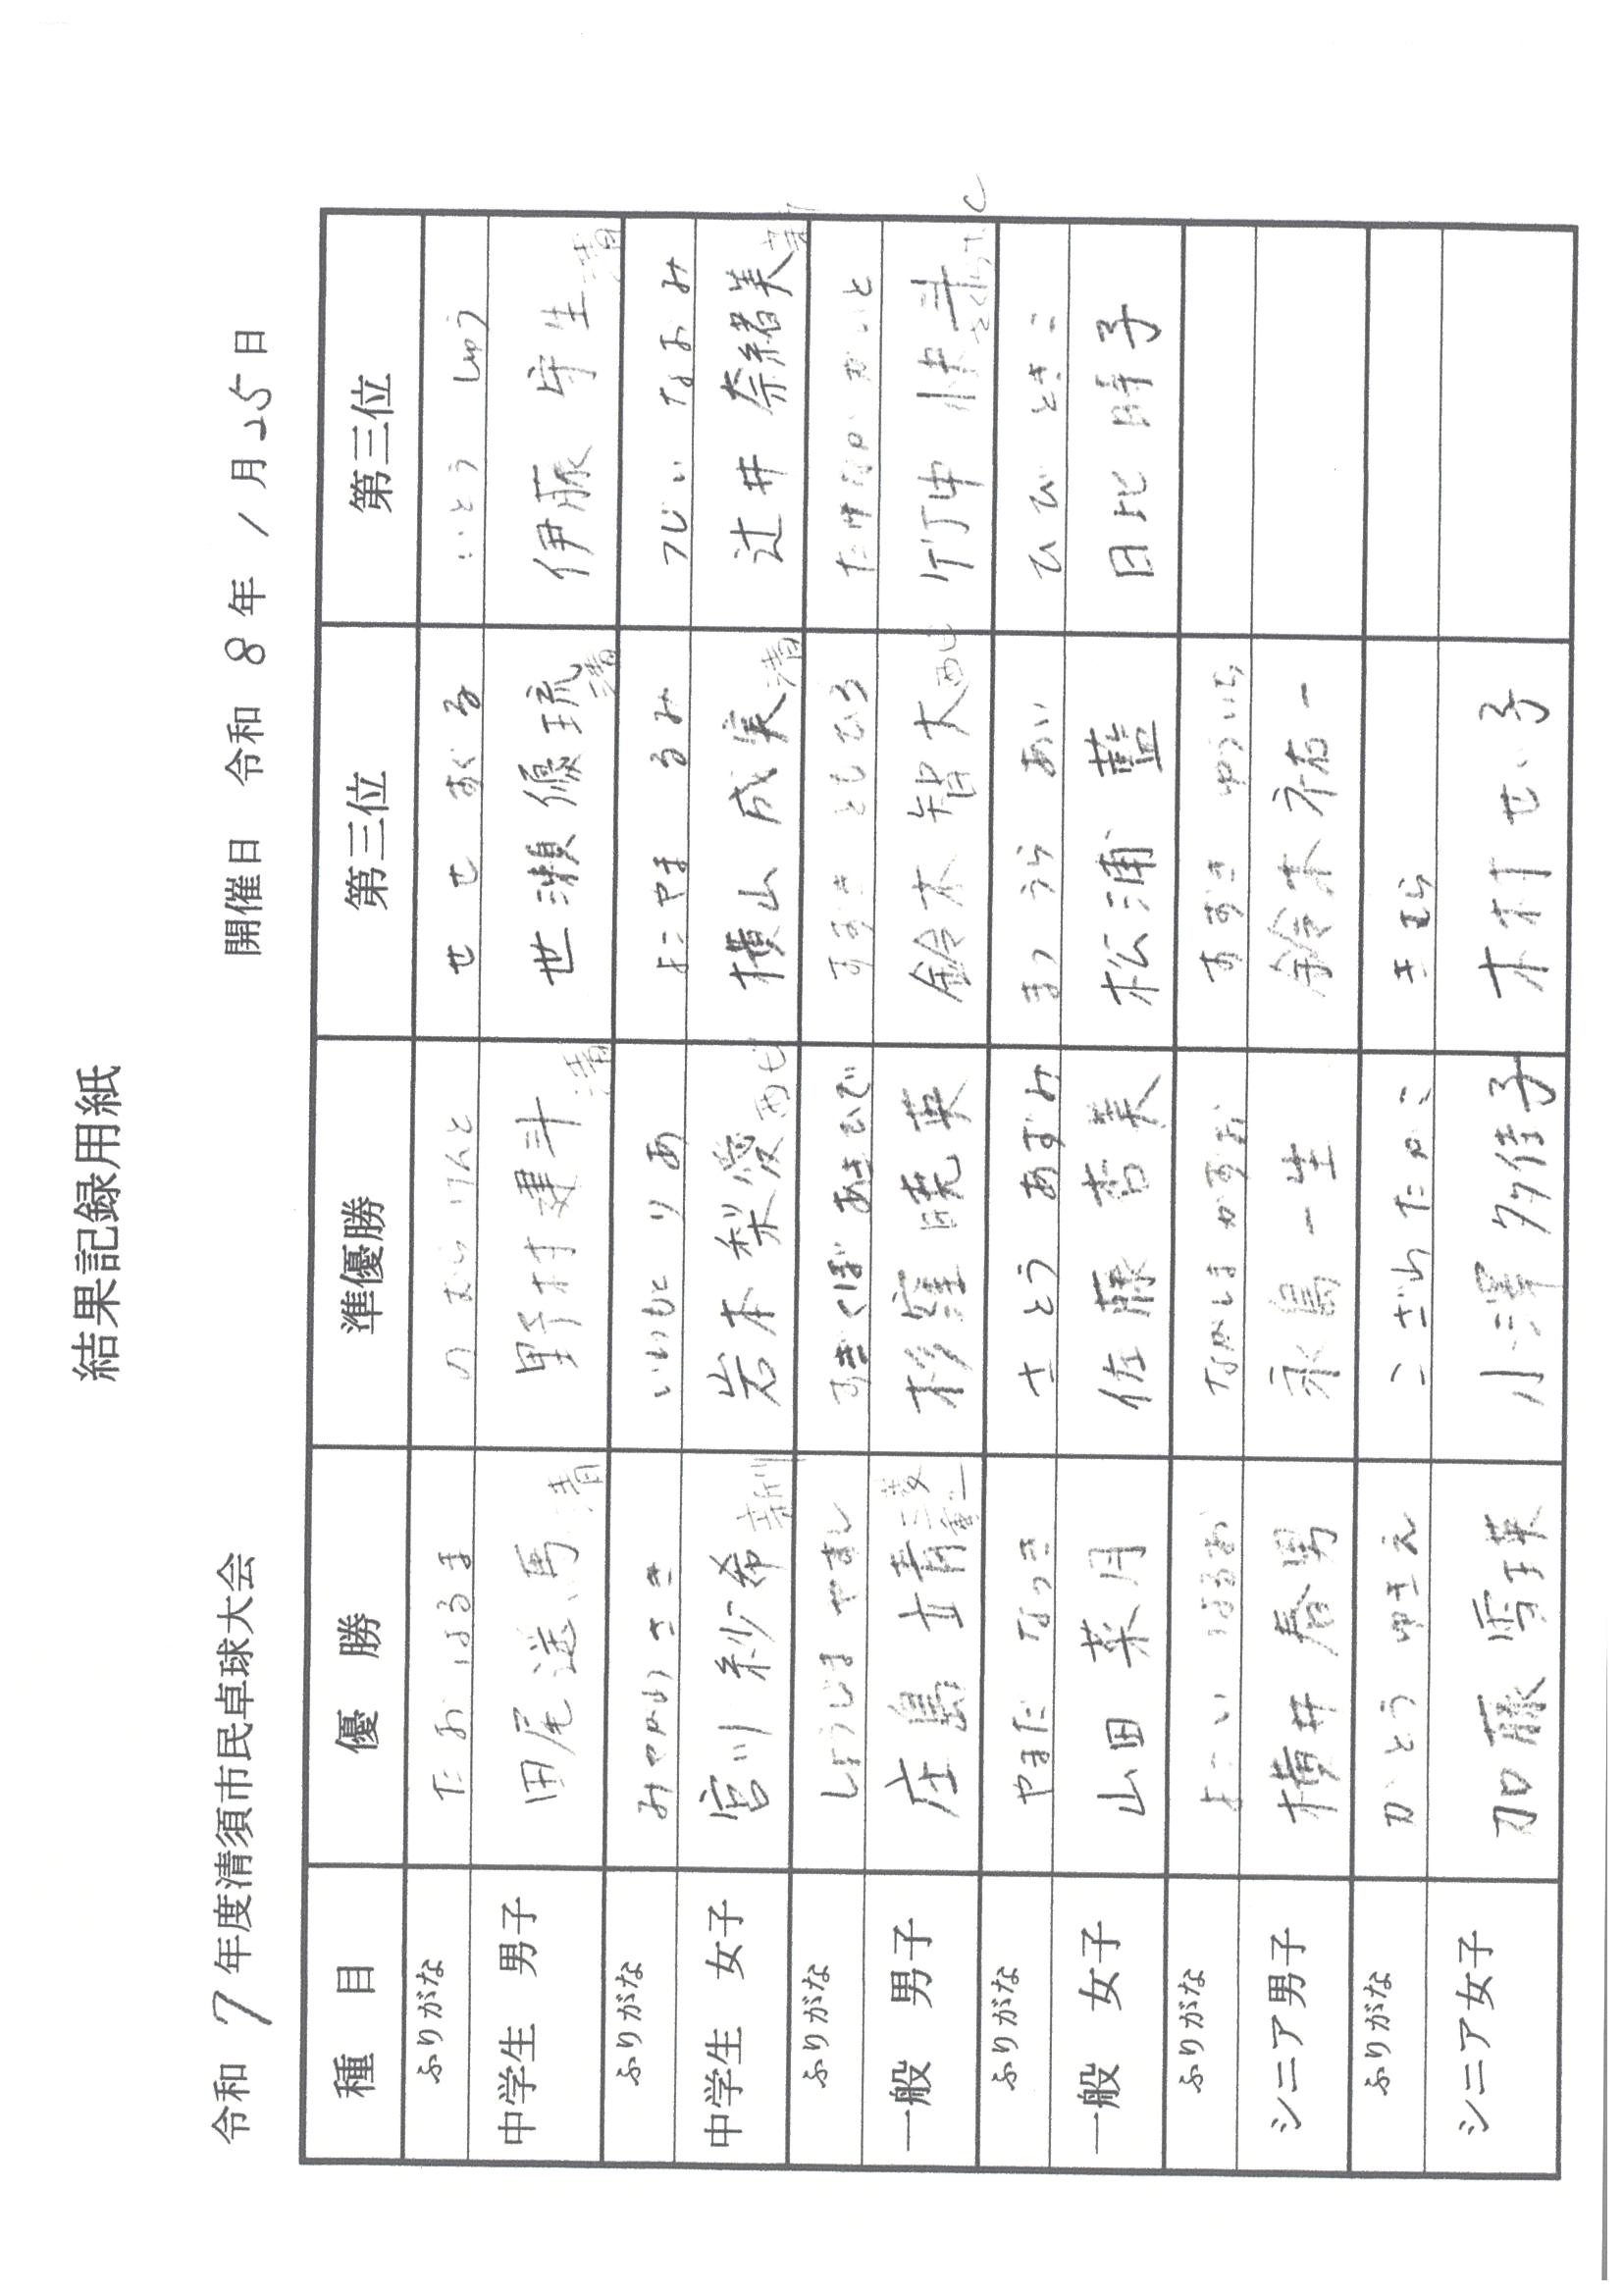 結果記録用紙
令和 7 年度清須市民卓球大会 開催日 令和 8 年 1 月 25 日
種 目 優 勝 準優勝 第三位 第三位
ふりがな たお はるま のむら けんと せせ すぐる いとう しゅう
中学生 男子 田尾 遥馬 清 野村 建斗 清 世瀬 優琉 清 伊藤 守生 清
ふりがな みやがわ さき いわもと りあ よこやま るみ つじい なおみ
中学生 女子 宮川 紗希 新川 岩本 梨愛 西ビ 横山 成実 清 辻井 奈緒美 新川
ふりがな しょうじま やすし すぎくぼ あきひで すずき ともひろ たけなか かいと
一般 男子 庄島 靖 三菱重工 杉窪 暁英 鈴木 智大 西ビ 竹中 快斗
ふりがな やまだ なつき さとう あずみ まつうら あい ひび ときこ
一般 女子 山田 菜月 佐藤 杏美 松浦 藍 日比 時子
ふりがな よこい はるお ながしま かずお すずき ゆういち
シニア男子 横井 春男 永島 一生 鈴木 祐一
ふりがな かとう ゆきえ こざわ たかこ きむら
シニア女子 加藤 雪瑛 小澤 多佳子 木村 せい子